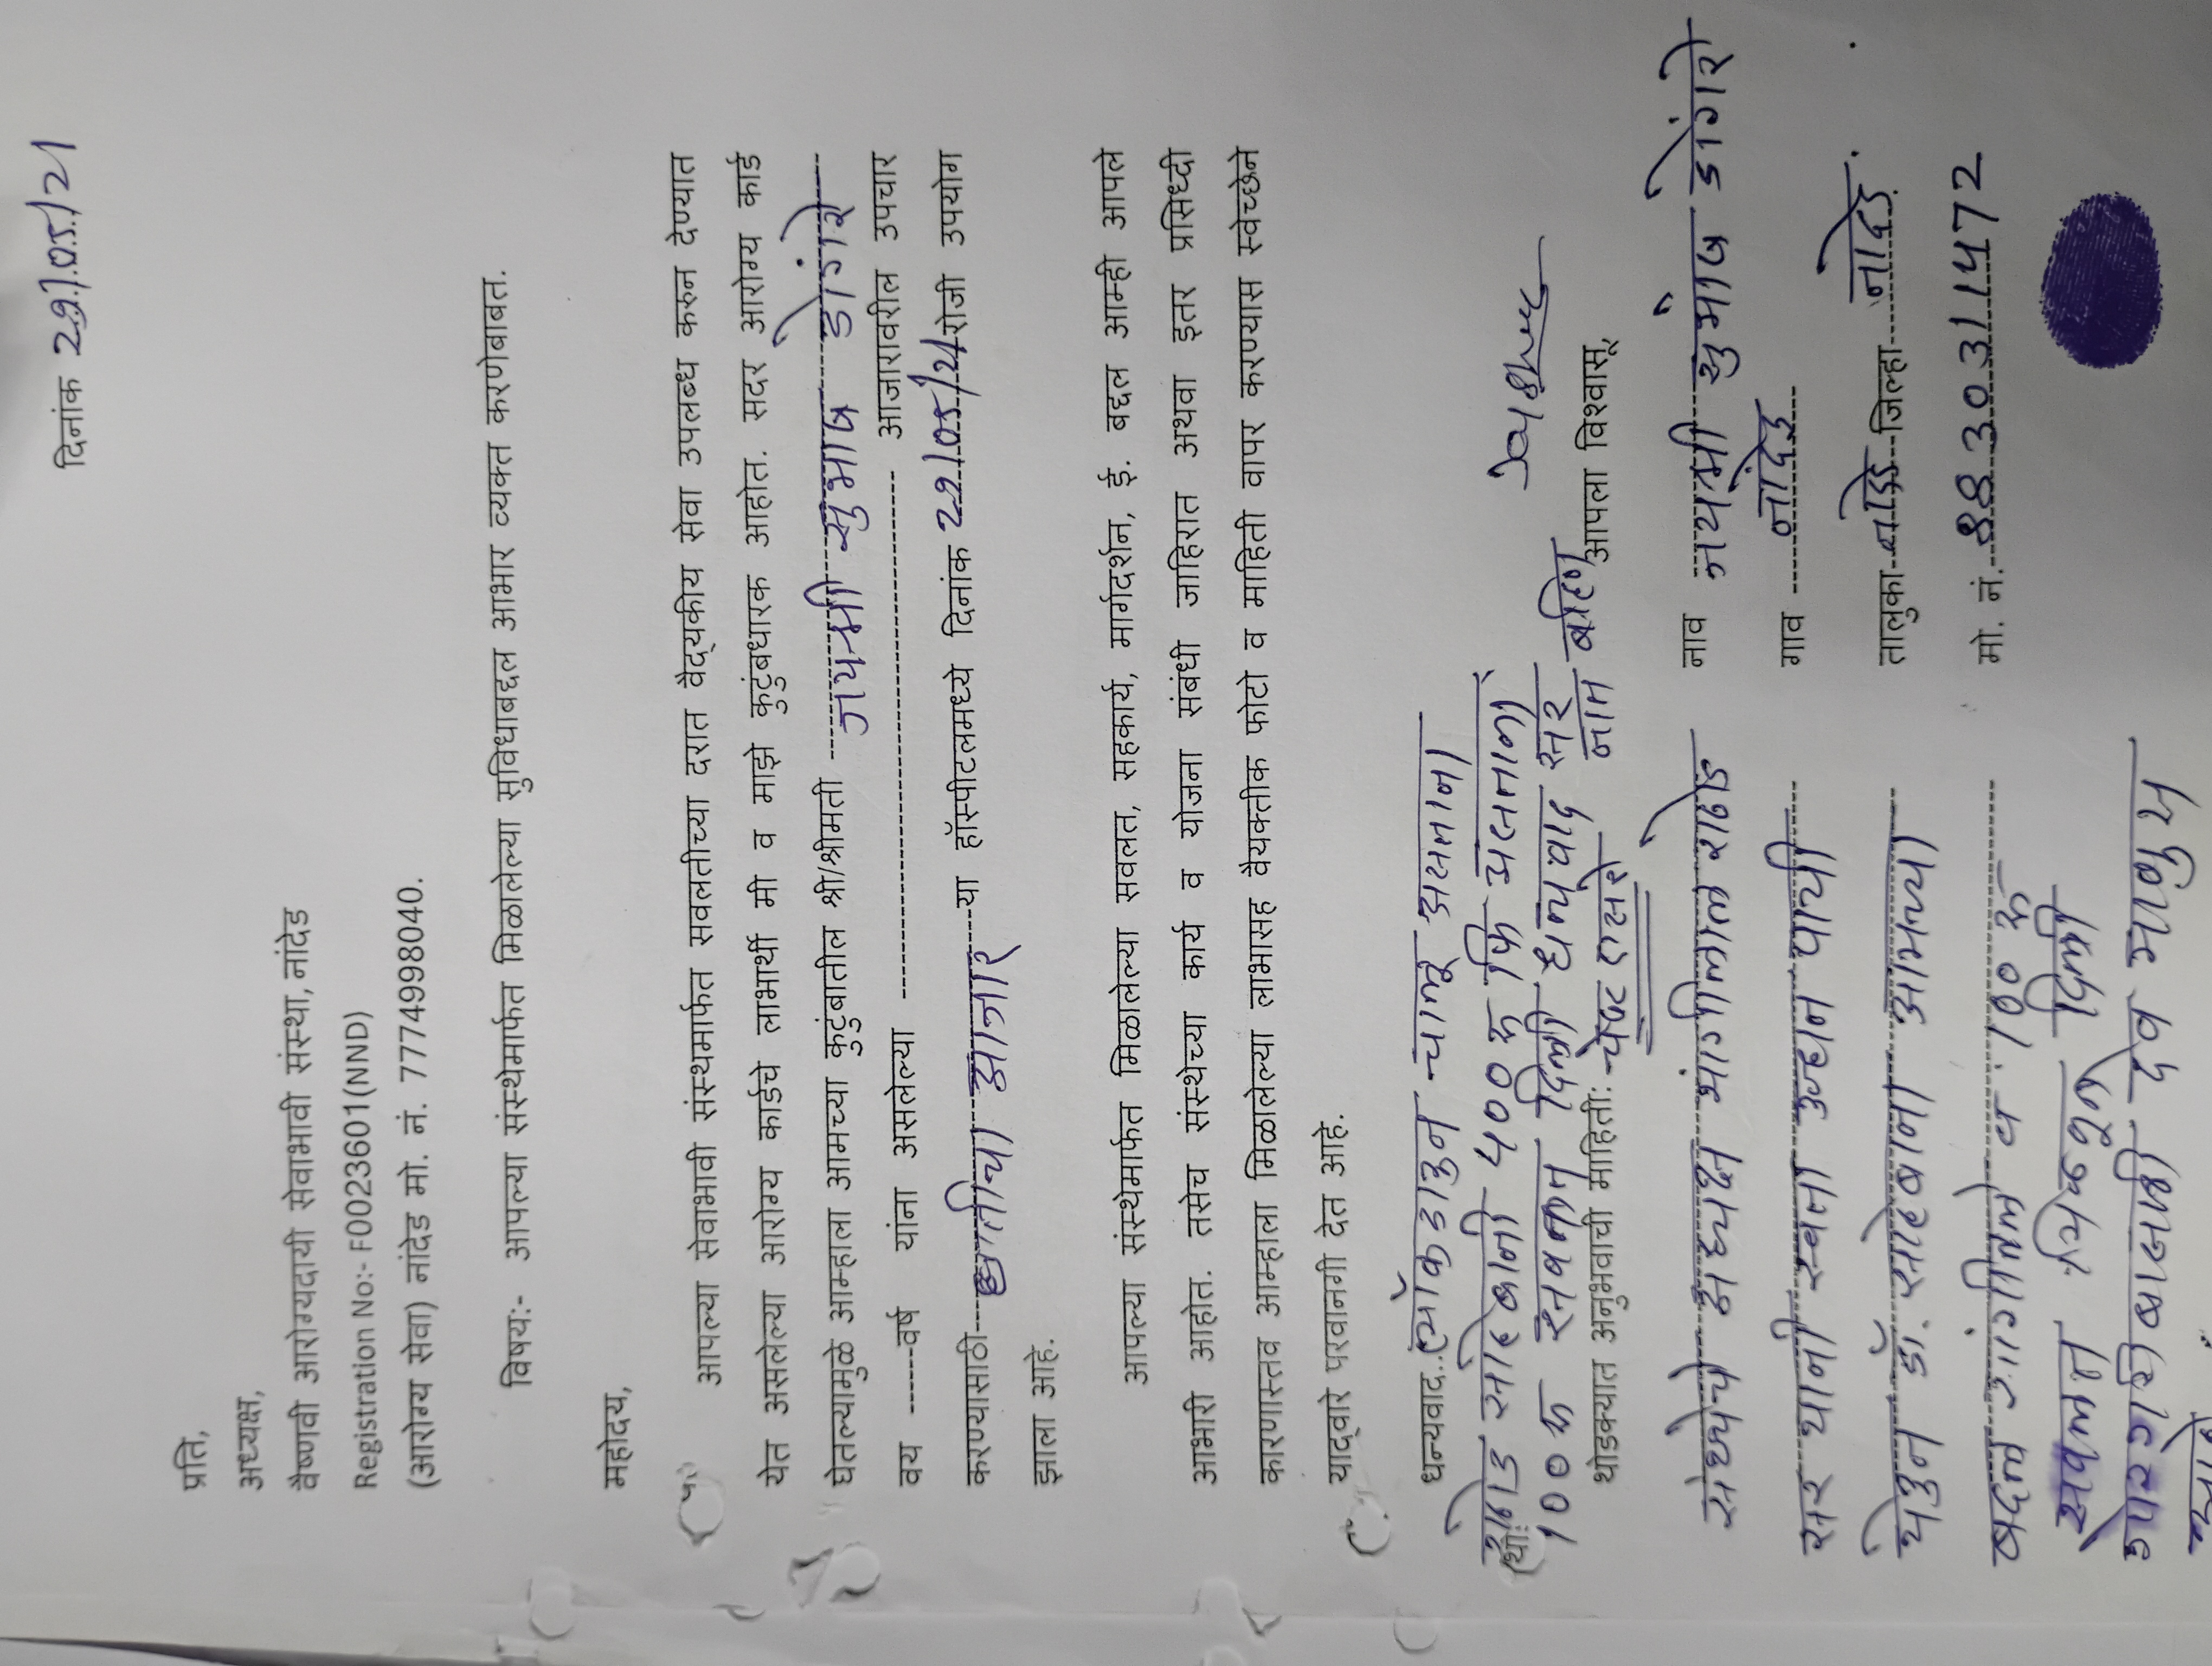 दिनांक 29/05/21
प्रति,
अध्यक्ष,
वैष्णवी आरोग्यदायी सेवाभावी संस्था, नांदेड
Registration No:- F0023601(NND)
(आरोग्य सेवा) नांदेड मो. नं. 7774998040.
विषय:- आपल्या संस्थेमार्फत मिळालेल्या सुविधाबद्दल आभार व्यक्त करणेबाबत.
महोदय,
आपल्या सेवाभावी संस्थेमार्फत सवलतीच्या दरात वैद्यकीय सेवा उपलब्ध करुन देण्यात
येत असलेल्या आरोग्य कार्डचे लाभार्थी मी व माझे कुटुंबधारक आहोत. सदर आरोग्य कार्ड
घेतल्यामुळे आम्हाला आमच्या कुटुंबातील श्री/श्रीमती जयश्री सुभाष डोंगरे
वय ------वर्ष यांना असलेल्या ------ आजारावरील उपचार
करण्यासाठी छातीचा आजार या हॉस्पीटलमध्ये दिनांक 29/05/21 रोजी उपयोग
झाला आहे.
आपल्या संस्थेमार्फत मिळालेल्या सवलत, सहकार्य, मार्गदर्शन, ई. बद्दल आम्ही आपले
आभारी आहोत. तसेच संस्थेच्या कार्य व योजना संबंधी जाहिरात अथवा इतर प्रसिध्दी
कारणास्तव आम्हाला मिळालेल्या लाभासह वैयक्तीक फोटो व माहिती वापर करण्यास स्वेच्छेने
याद्वारे परवानगी देत आहे.
धन्यवाद..
साहेबानी 500 रू फि असताना
100 रू सवलत दिली धन्यवाद सर
थोडक्यात अनुभवाची माहिती:-
आपला विश्वासू
संस्थेचे अध्यक्ष राठोड
सर यानी स्वता
येउन डॉ. साहेबाना आमच्या
बद्दल सांगीतले व 100 रू
सवलत दिली
देव माणुस
नाव जयश्री सुभाष डोंगरे
गाव नांदेड
तालुका नांदेड जिल्हा नांदेड.
मो. नं. 8830311472